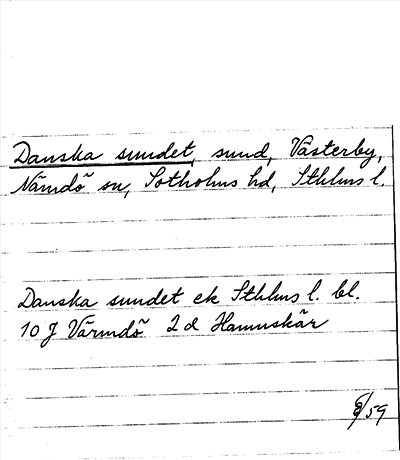 Danska sundet, sund, Västerby,
Nämdö sn, Sotholms hd, Sthlms l.
Danska sundet ek Sthlms l. bl.
10 J Värmdö 2 d Hamnskär
/59